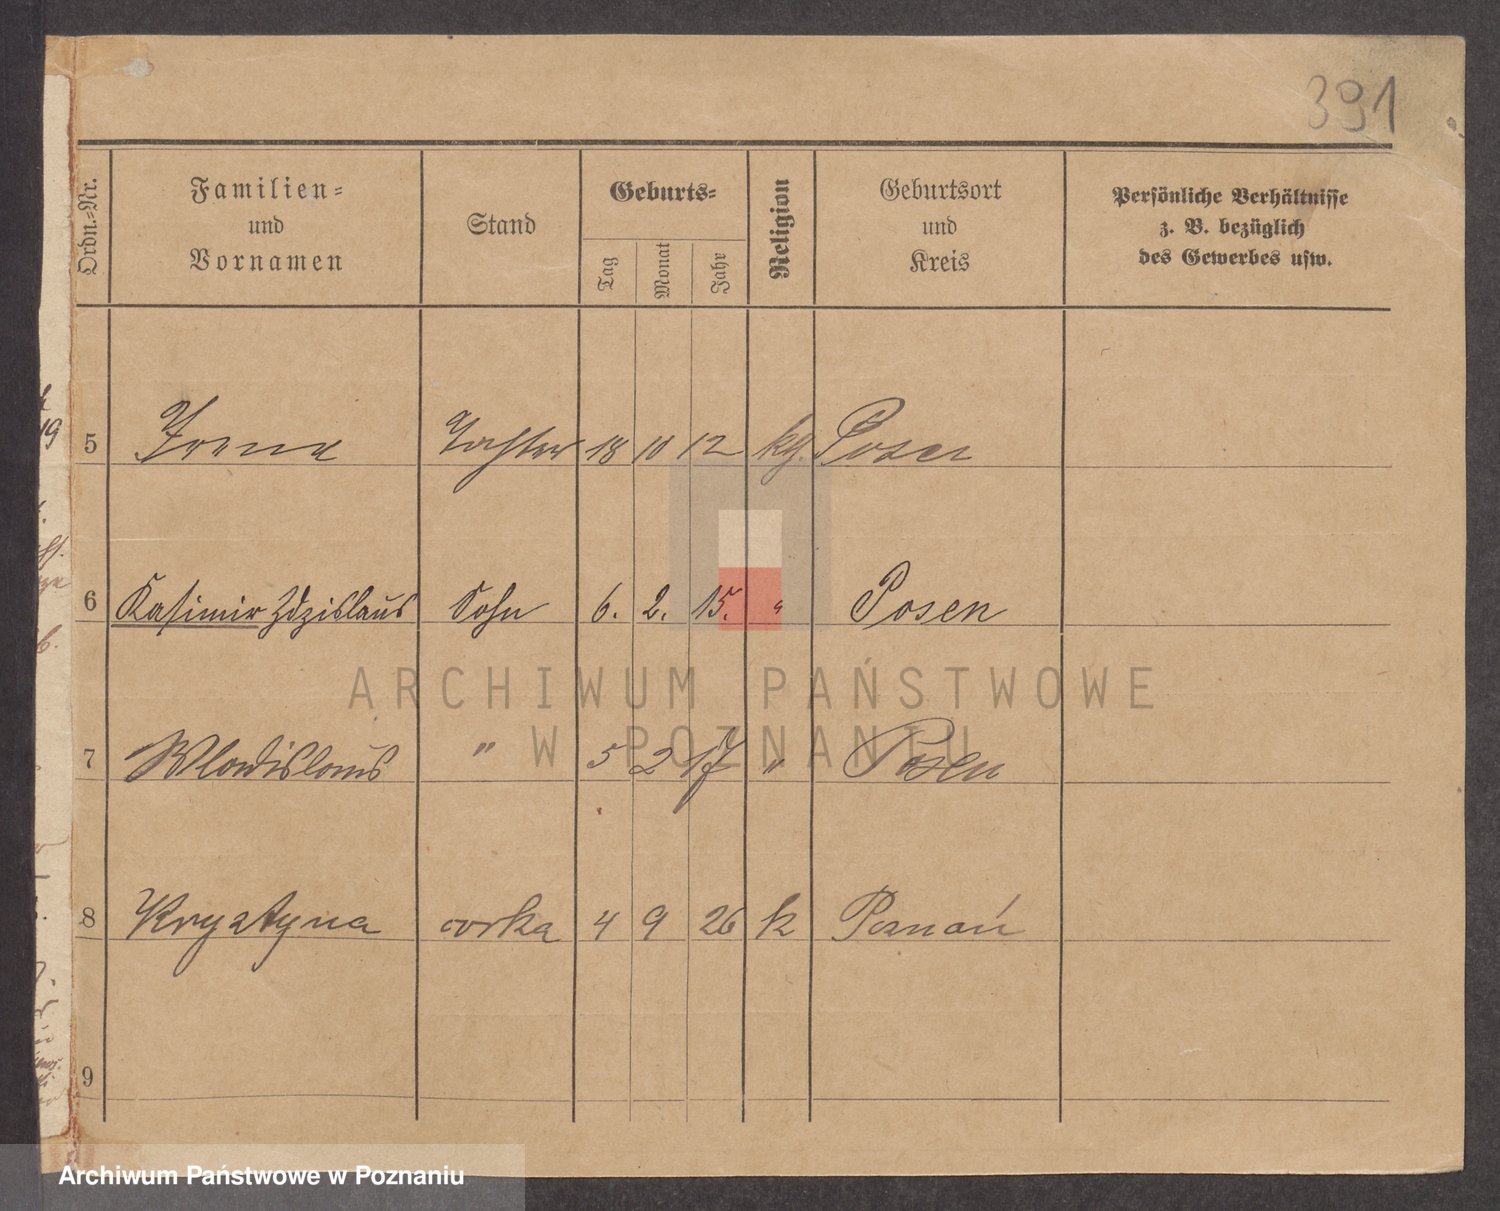 391
Ordn.=Nr.
Familien=
und
Vornamen
Stand
Geburts=
Tag
Monat
Jahr
Religion
Geburtsort
und
Kreis
Persönliche Verhältnisse
z. B. bezüglich
des Gewerbes usw.
5 Irena Tochter 18 10 12 kg. Posen
6 Kasimir Zdzislaus Sohn 6. 2. 15. " Posen
7 Wladislaus " 5 2 17 " Posen
8 Krystyna corka 4 9 26 k Poznań
9
ARCHIWUM PAŃSTWOWE
W POZNANIU
Archiwum Państwowe w Poznaniu